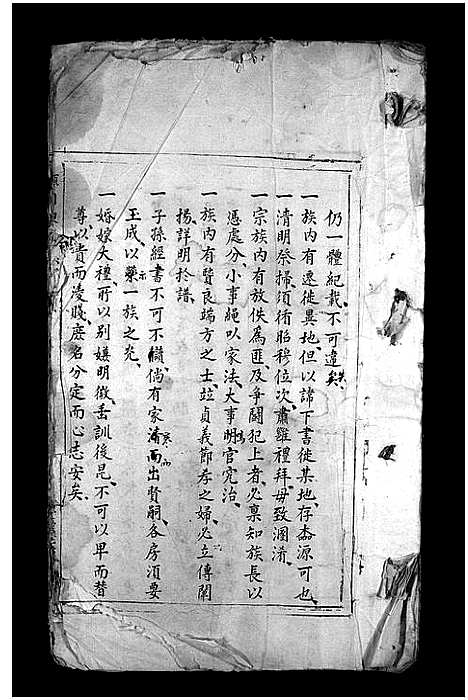 仍一體紀載、不可違矣、
一族內有遷徙異地但以諦下書徙某地、存水源可也、
一清明祭掃、須循昭穆位次、肅雖禮拜、毋致溷淆、
一宗族內有放佚為匪、及爭鬪犯上者、必稟知族長以
憑處分、小事繩以家法、大事明官究治、
一族內有賢良端方之士、竝貞義節孝之婦、必立傳闡
揚、詳明於譜、
一子孫經書不可不讀、倘有家清而出賢嗣、各房須要
玉成、以示一族之光、
一婚嫁大禮、所以別嫌明徵、垂訓後昆、不可以卑而替
尊、以貴而凌賤、庶名分定而心志安矣、